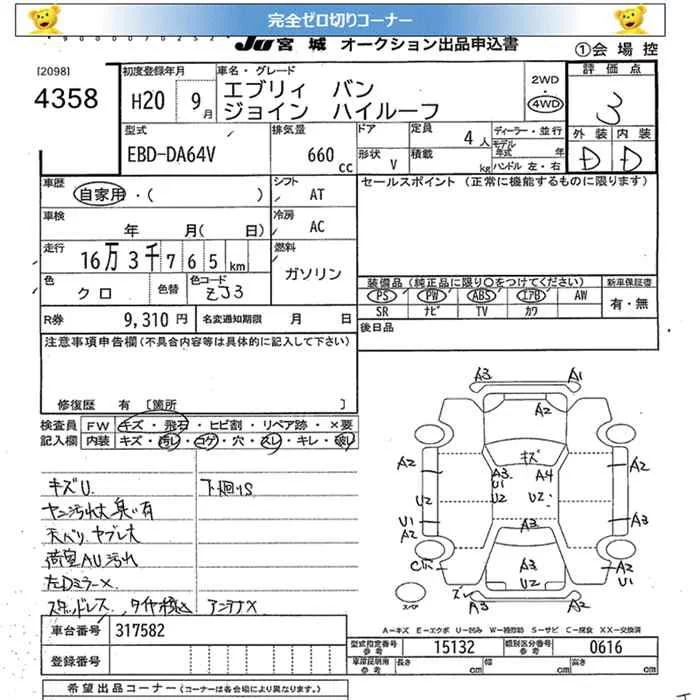 完全ゼロ切りコーナー
JU宮城 オークション出品申込書
①会場控
[2098]
4358
初度登録年月
H20 9月
車名・グレード
エブリィ バン
ジョイン ハイルーフ
2WD
・
4WD
評価点
3
外装 内装
D D
型式
EBD-DA64V
排気量
660 cc
ドア
形状 V
定員 4人
積載 kg
ディーラー・並行
モデル年式 年
ハンドル 左・右
車歴
自家用・( )
シフト
AT
セールスポイント (正常に機能するものに限ります)
車検
年 月( 日)
冷房
AC
走行
16万3千765km
燃料
ガソリン
色
クロ
色替
色コード
ZJ3
装備品(純正品に限り○をつけてください)
PS PW ABS エアB AW
SR ナビ TV カワ
新車保証書
有・無
R券 9,310円
名変通知期限 月 日
後日品
注意事項申告欄(不具合内容等は具体的に記入して下さい)
修復歴 有 [箇所 ]
検査員記入欄
FW キズ・飛石・ヒビ割・リペア跡・×要
内装 キズ・汚レ・コゲ・穴・スレ・キレ・破レ
キズU.
下廻りS
ヤニ汚れ大 臭い有
天バリ ヤブレ大
荷室AU汚れ
左Dミラー×
スタッドレス
アンテナ×
A3 A1
A2
キズ
A2
A3 U1 A4
U2 U2
U2
A2
U1
A2
A3
A3
A3
U2
A2
U1
A3 A2
スペア
A=キズ E=エクボ U=凹み W=補修跡 S=サビ C=腐食 XX=交換済
車台番号 317582
登録番号
型式指定番号 参考 15132
類別区分番号 参考 0616
車庫証明用 参考 長さ cm 幅 cm 高さ cm
希望出品コーナー(コーナーは各会場により異なります。)